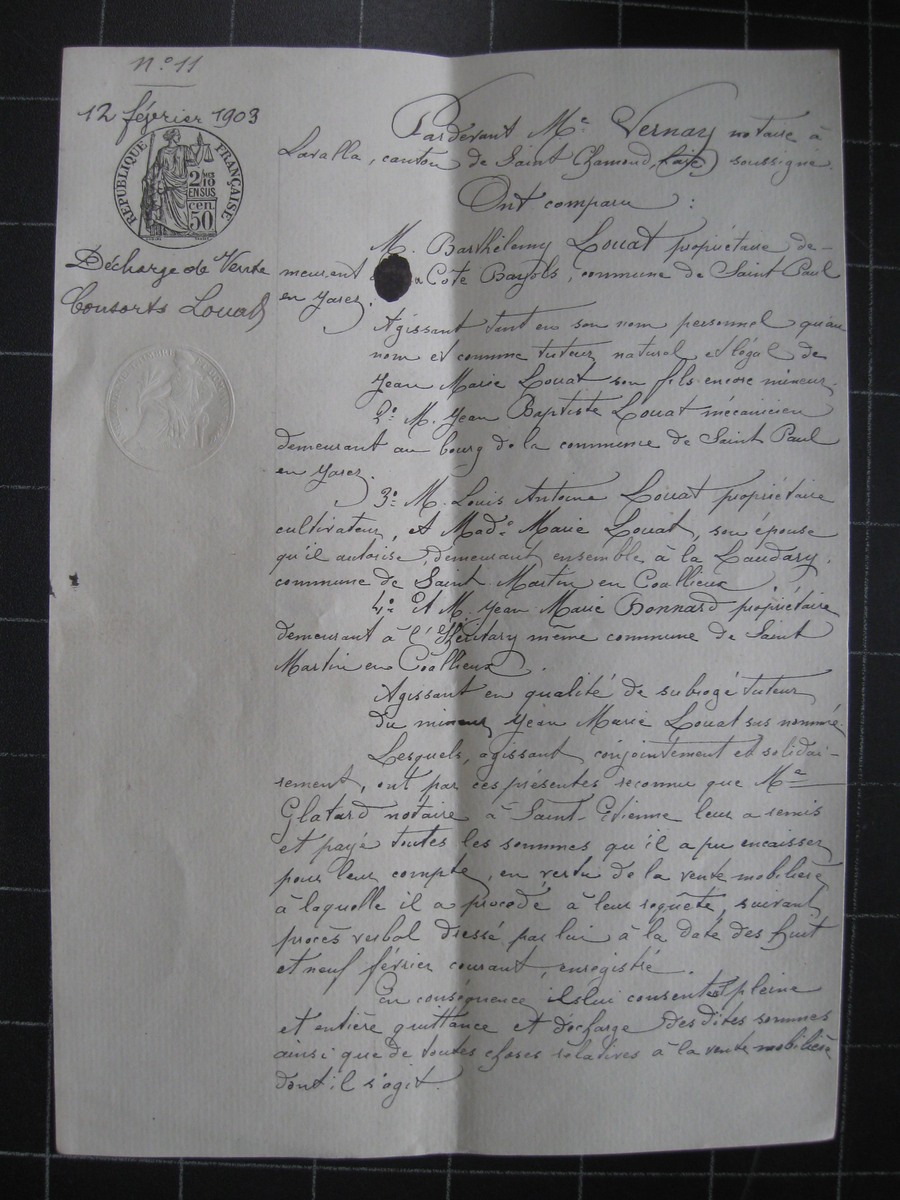 N.º 11
12 février 1903
RÉPUBLIQUE FRANÇAISE
2/10
EN SUS
50 cen.
Décharge de Vente
Consorts Louat
Pardevant Me Vernay notaire à
Lavalla, canton de Saint Chamond, (Loire) soussigné
Ont comparu :
M. Barthélemy Louat propriétaire de-
meurant à Cote Bayols, commune de Saint Paul
en Jarez.
Agissant tant en son nom personnel qu'au
nom et comme tuteur naturel et légal de
Jean Marie Louat son fils encore mineur.
2º M. Jean Baptiste Louat mécanicien
demeurant au bourg de la commune de Saint Paul
en Jarez.
3º M. Louis Antoine Louat propriétaire
cultivateur, et Made Marie Louat, son épouse
qu'il autorise, demeurant ensemble à la Laudary,
commune de Saint Martin en Coallieux
4º Et M. Jean Marie Bonnard propriétaire
demeurant à même commune de Saint
Martin en Coallieux.
Agissant en qualité de subrogé tuteur
du mineur Jean Marie Louat sus nommé.
Lesquels, agissant conjointement et solidai-
rement, ont par ces présentes reconnu que Me
Glatard notaire à Saint-Etienne leur a remis
et payé toutes les sommes qu'il a pu encaisser
pour leur compte, en vertu de la vente mobilière
à laquelle il a procédé à leur requête, suivant
procès verbal dressé par lui à la date des huit
et neuf février courant, enregistré.
En conséquence ils lui consentent pleine
et entière quittance et décharge des dites sommes
ainsi que de toutes choses relatives à la vente mobilière
dont il s'agit.